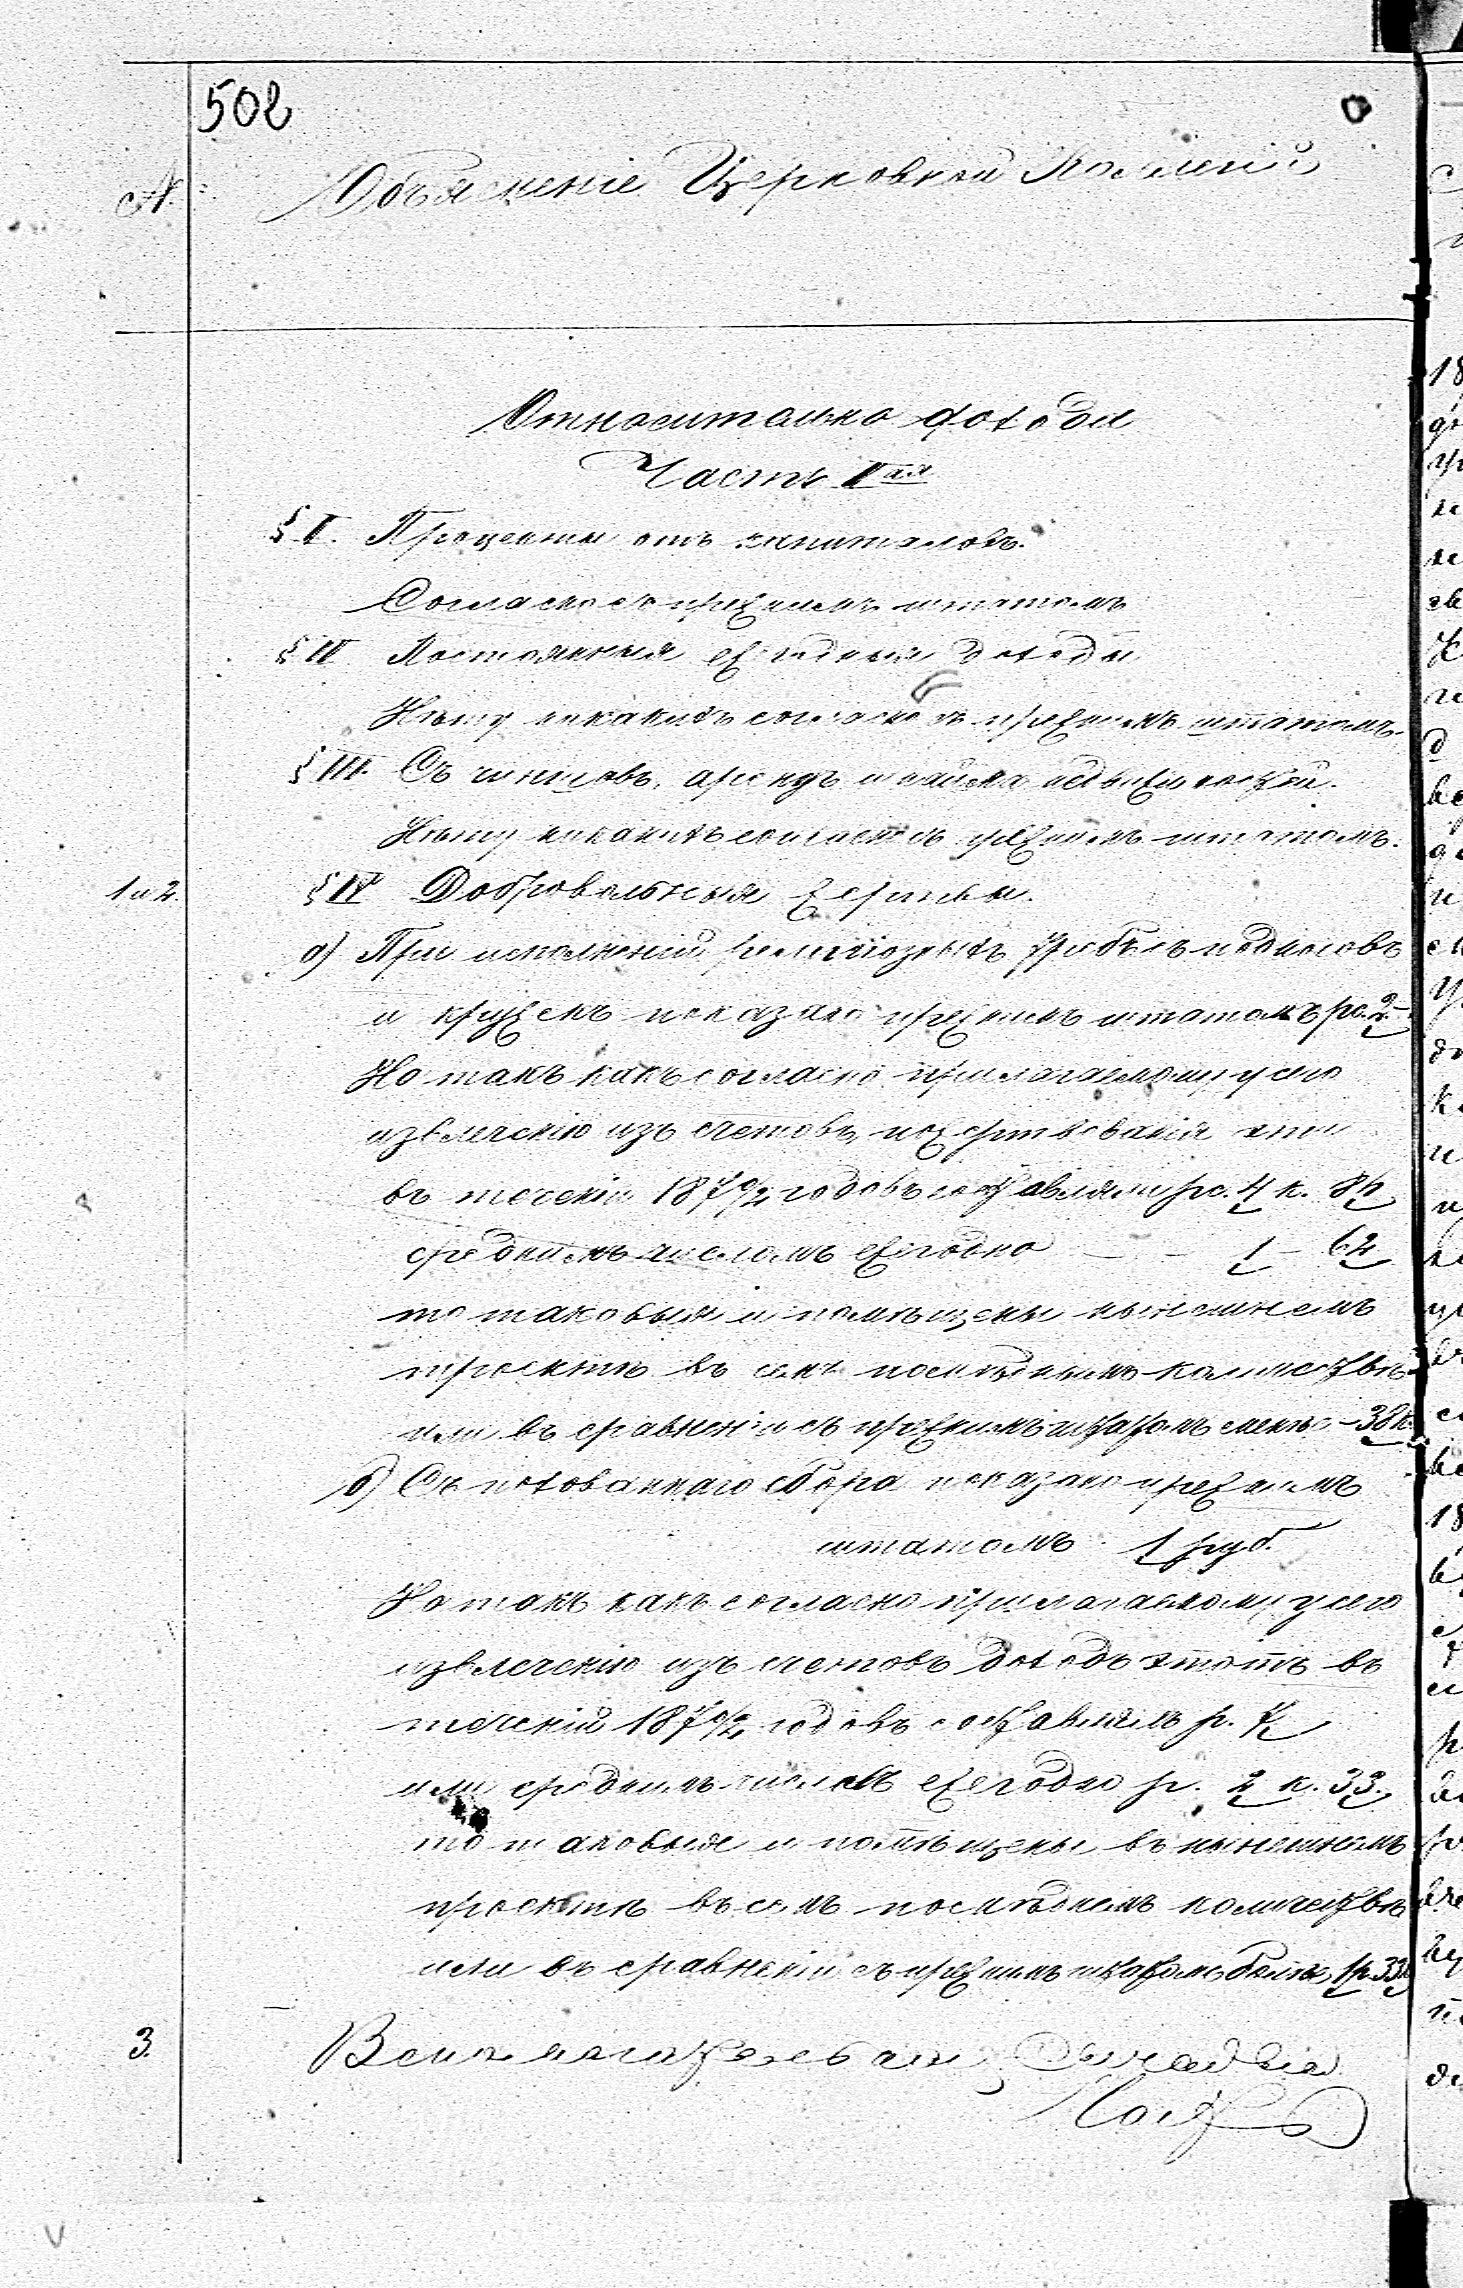 502
№:
Объясненіе Церковной Коллегіи
Относительно дохода
Часть I ая
§ I. Проценты отъ капиталовъ.
Согласно съ прежнимъ штатомъ
§ II Постоянныя ежегодныя доходы
Нѣту никакихъ согласно съ прежнимъ штатомъ.
§ III. Съ чиншовъ, арендъ и найма недвижимостей.
Нѣту никакихъ согласно съ прежнимъ штатомъ.
1 и 2.
§ IV Добровольныя жертвы.
а) При исполненіи религіозныхъ требъ съ подносовъ
и кружекъ показано прежнимъ штатомъ рс. 2 –
Но такъ какъ согласно прилагаемому у сего
извлеченію изъ счетовъ, пожертвованія эти
въ теченіи 1870/2 годовъ составляли рс. 4 к. 86
среднимъ числомъ ежегодно — – 1 – 62
то таковыя и помѣщены нынешнемъ
проектѣ въ семъ послѣднемъ количествѣ
или въ сравненіи съ прежнимъ штатомъ менѣе – 38 к.
б) Съ похованнаго сбора показано прежнимъ
штатомъ 1 руб.
Но такъ какъ согласно прилагаемому у сего
извлеченію изъ счетовъ доходъ этотъ въ
теченіи 1870/2 годовъ составлялъ р. 7
или среднимъ числомъ ежегодно р. 2 к. 33.
то таковыя и помѣщены въ нынешнемъ
проектѣ въ семъ послѣднемъ количествѣ
или въ сравненіи съ прежнимъ штатомъ болѣе 1 р. 33 к
3.